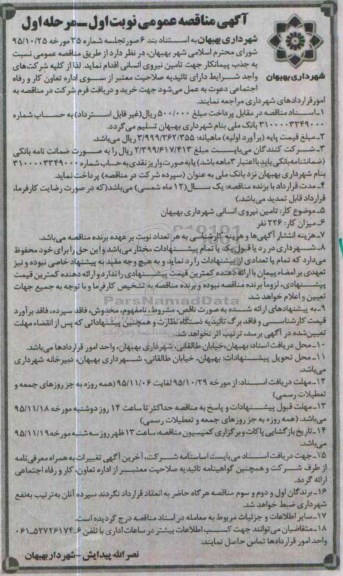 آگهی مناقصه عمومی نوبت اول - مرحله اول
شهرداری بهبهان به استناد بند ۶ صورتجلسه شماره ۳۵ مورخه ۹۵/۱۰/۲۵
شورای محترم اسلامی شهر بهبهان، در نظر دارد از طریق مناقصه عمومی نسبت
به جذب پیمانکار جهت تامین نیروی انسانی اقدام نماید. لذا از کلیه شرکت‌های
واجد شرایط دارای تائیدیه صلاحیت معتبر از سوی اداره تعاون کار و رفاه
اجتماعی دعوت به عمل می‌شود جهت خرید و دریافت فرم شرکت در مناقصه به
امور قراردادهای شهرداری مراجعه نمایند.
شهرداری بهبهان
۱- اسناد مناقصه در مقابل پرداخت مبلغ ۵۰۰/۰۰۰ ریال (غیر قابل استرداد) به حساب شماره
۳۱۰۰۰۰۳۳۴۹۰۰۰ بانک ملی بنام شهرداری بهبهان تسلیم می‌گردد.
۲- مبلغ قیمت پایه (برآورد اولیه) ماهیانه: ۳/۹۹۹/۳۶۲/۳۵۵ ریال می‌باشد.
۳- شرکت کنندگان می‌بایست مبلغ ۲/۳۹۹/۶۱۷/۴۱۳ ریال را به صورت ضمانت نامه بانکی
(ضمانتنامه بانکی باید با اعتبار ۳ ماهه باشد) یا به صورت واریز نقدی به حساب شماره ۳۱۰۰۰۰۳۳۴۹۰۰۰
بنام شهرداری بهبهان نزد بانک ملی به عنوان (سپرده شرکت در مناقصه) پرداخت نماید.
۴- مدت قرارداد با برنده مناقصه: یک سال (۱۲ ماه شمسی) می‌باشد (که در صورت رضایت کارفرما،
قرارداد قابل تمدید می‌باشد)
۵- موضوع کار: تامین نیروی انسانی شهرداری بهبهان
۶- میزان کار: ۲۲۶ نفر
۷- هزینه انتشار آگهی‌ها و هزینه کارشناسی به هر تعداد نوبت بر عهده برنده مناقصه می‌باشد.
۸- شهرداری در رد یا قبول یک یا تمام پیشنهادات مختار می‌باشد و این حق را برای خود محفوظ
می‌دارد که تمام یا تعدادی از پیشنهادات را رد نماید و به هیچ وجه مقید به پیشنهاد خاصی نبوده و نیز
تعهدی بر امضاء پیمان با ارائه دهنده کمترین قیمت پیشنهادی را ندارد و ارائه دهنده کمترین قیمت
پیشنهادی، لزوما برنده مناقصه نبوده و برنده مناقصه به تشخیص کارفرما و با توجه به جمیع جهات
تعیین و اعلام خواهد شد.
۹- به پیشنهادهای ارائه شده به صورت ناقص، مشروط، نامفهوم، مخدوش، فاقد سپرده، فاقد برآورد
قیمت کارشناسی و فاقد برگ تائیدیه دستگاه نظارت و همچنین پیشنهاداتی که پس از انقضاء مهلت
تعیین شده در آگهی برسد، ترتیب اثر داده نخواهد شد.
۱۰- محل دریافت اسناد: بهبهان، خیابان طالقانی، شهرداری بهبهان، واحد امور قراردادها می‌باشد.
۱۱- محل تحویل پیشنهادات: بهبهان، خیابان طالقانی، شهرداری بهبهان، دبیرخانه شهرداری
می‌باشد.
۱۲- مهلت دریافت اسناد: از مورخه ۹۵/۱۰/۲۹ لغایت ۹۵/۱۱/۰۶ (همه روزه به جز روزهای جمعه و
تعطیلات رسمی)
۱۳- مهلت قبول پیشنهادات و پاسخ به مناقصه حداکثر تا ساعت ۱۴ روز دوشنبه مورخه ۹۵/۱۱/۱۸
می‌باشد. (همه روزه به جز روزهای جمعه و تعطیلات رسمی)
۱۴- تاریخ بازگشایی پاکات و برگزاری کمیسیون مناقصه، ساعت ۱۳ ظهر روز سه شنبه مورخه ۹۵/۱۱/۱۹
می‌باشد.
۱۵- جهت دریافت اسناد می‌بایست اساسنامه شرکت، آخرین آگهی تغییرات به همراه معرفی نامه
از طرف شرکت و همچنین گواهینامه تائیدیه صلاحیت معتبر از اداره تعاون، کار و رفاه اجتماعی
ارائه گردد.
۱۶- برندگان اول و دوم و سوم مناقصه هرگاه حاضر به انعقاد قرارداد نگردند سپرده آنان به ترتیب به نفع
شهرداری ضبط خواهد شد.
۱۷- سایر اطلاعات و جزئیات مربوط به معامله در اسناد مناقصه درج گردیده است.
۱۸- متقاضیان می‌توانند جهت کسب اطلاعات بیشتر در ساعات اداری با تلفن ۰۶۱-۵۲۷۲۶۱۷۴۰۶
واحد امور قراردادها تماس حاصل نمایند.
نصرالله پیدایش - شهردار بهبهان
ParsNamadData